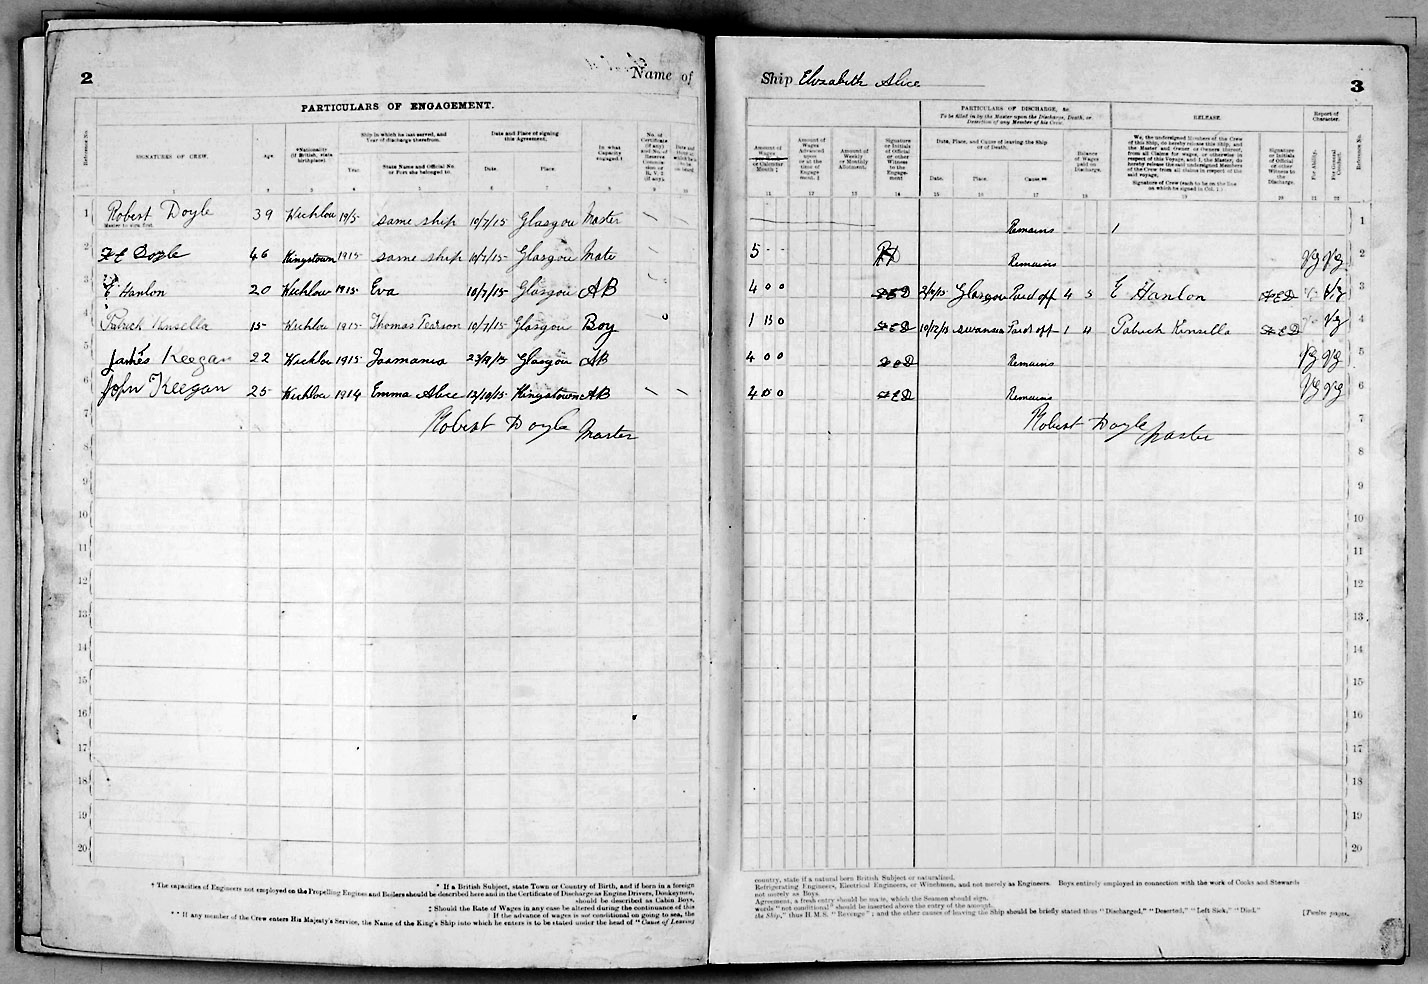 2
Name of
PARTICULARS OF ENGAGEMENT.
Reference No.
SIGNATURES OF CREW.
Age.
*Nationality (if British, state birthplace).
Ship in which he last served, and Year of discharge therefrom.
Year.
State Name and Official No. or Port she belonged to.
Date and Place of signing this Agreement.
Date.
Place.
In what Capacity engaged.†
1 2 3 4 5 6 7 8 9 10
1 Robert Doyle 39 Wicklow 1915 same ship 10/7/15 Glasgow Master
Master to sign first.
2 Doyle 46 Kingstown 1915 same ship 10/7/15 Glasgow Mate
3 E Hanlon 20 Wicklow 1915 Eva 10/7/15 Glasgow AB
4 Patrick Kinsella 15 Wicklow 1915 Thomas Pearson 10/7/15 Glasgow Boy
5 James Keegan 22 Wicklow 1915 Tasmania Glasgow AB
6 John Keegan 25 Wicklow 1914 Emma Alice 12/10/15 Kingstown AB
7 Robert Doyle Master
8
9
10
11
12
13
14
15
16
17
18
19
20
† The capacities of Engineers not employed on the Propelling Engines and Boilers should be described here and in the Certificate of Discharge as Engine Drivers, Donkeymen,
* If a British Subject, state Town or Country of Birth, and if born in a foreign
should be described as Cabin Boys,
‡ Should the Rate of Wages in any case be altered during the continuance of this
If the advance of wages is not conditional on going to sea, the
** If any member of the Crew enters His Majesty's Service, the Name of the King's Ship into which he enters is to be stated under the head of "Cause of Leaving
Ship Elizabeth Alice
3
PARTICULARS OF DISCHARGE, &c.
To be filled in by the Master upon the Discharge, Death, or Desertion of any Member of his Crew.
RELEASE.
Report of Character.
Amount of Wages
or Calendar Month ‡
Amount of Wages Advanced upon or at the time of Engagement.
Amount of Weekly or Monthly Allotment.
Signature or Initials of Official or other Witness to the Engagement
Date, Place, and Cause of leaving the Ship or of Death.
Date.
Place.
Cause **
Balance of Wages paid on Discharge.
We, the undersigned Members of the Crew of this Ship, do hereby release this Ship, and the Master and Owner or Owners thereof, from all Claims for wages, or otherwise in respect of this Voyage; and I, the Master, do hereby release the said undersigned Members of the Crew from all claims in respect of the said voyage.
Signature of Crew (each to be on the line on which he signed in Col. 1.)
Signature or Initials of Official or other Witness to the Discharge.
For Ability.
For General Conduct.
Reference No.
11 12 13 14 15 16 17 18 19 20 21 22
Remains 1
5 - - Remains Vg Vg 2
4 0 0 Glasgow Paid off 4 5 E Hanlon Vg 3
1 10 0 10/12/15 Swansea Paid off 1 4 Patrick Kinsella Vg 4
4 0 0 Remains Vg Vg 5
4 0 0 Remains Vg Vg 6
Robert Doyle Master 7
8
9
10
11
12
13
14
15
16
17
18
19
20
country, state if a natural born British Subject or naturalized.
Refrigerating Engineers, Electrical Engineers, or Winchmen, and not merely as Engineers. Boys entirely employed in connection with the work of Cooks and Stewards
not merely as Boys.
Agreement, a fresh entry should be made, which the Seamen should sign.
words "not conditional" should be inserted above the entry of the amount.
the Ship," thus H.M.S. "Revenge"; and the other causes of leaving the Ship should be briefly stated thus "Discharged," "Deserted," "Left Sick," "Died."
[Twelve pages.